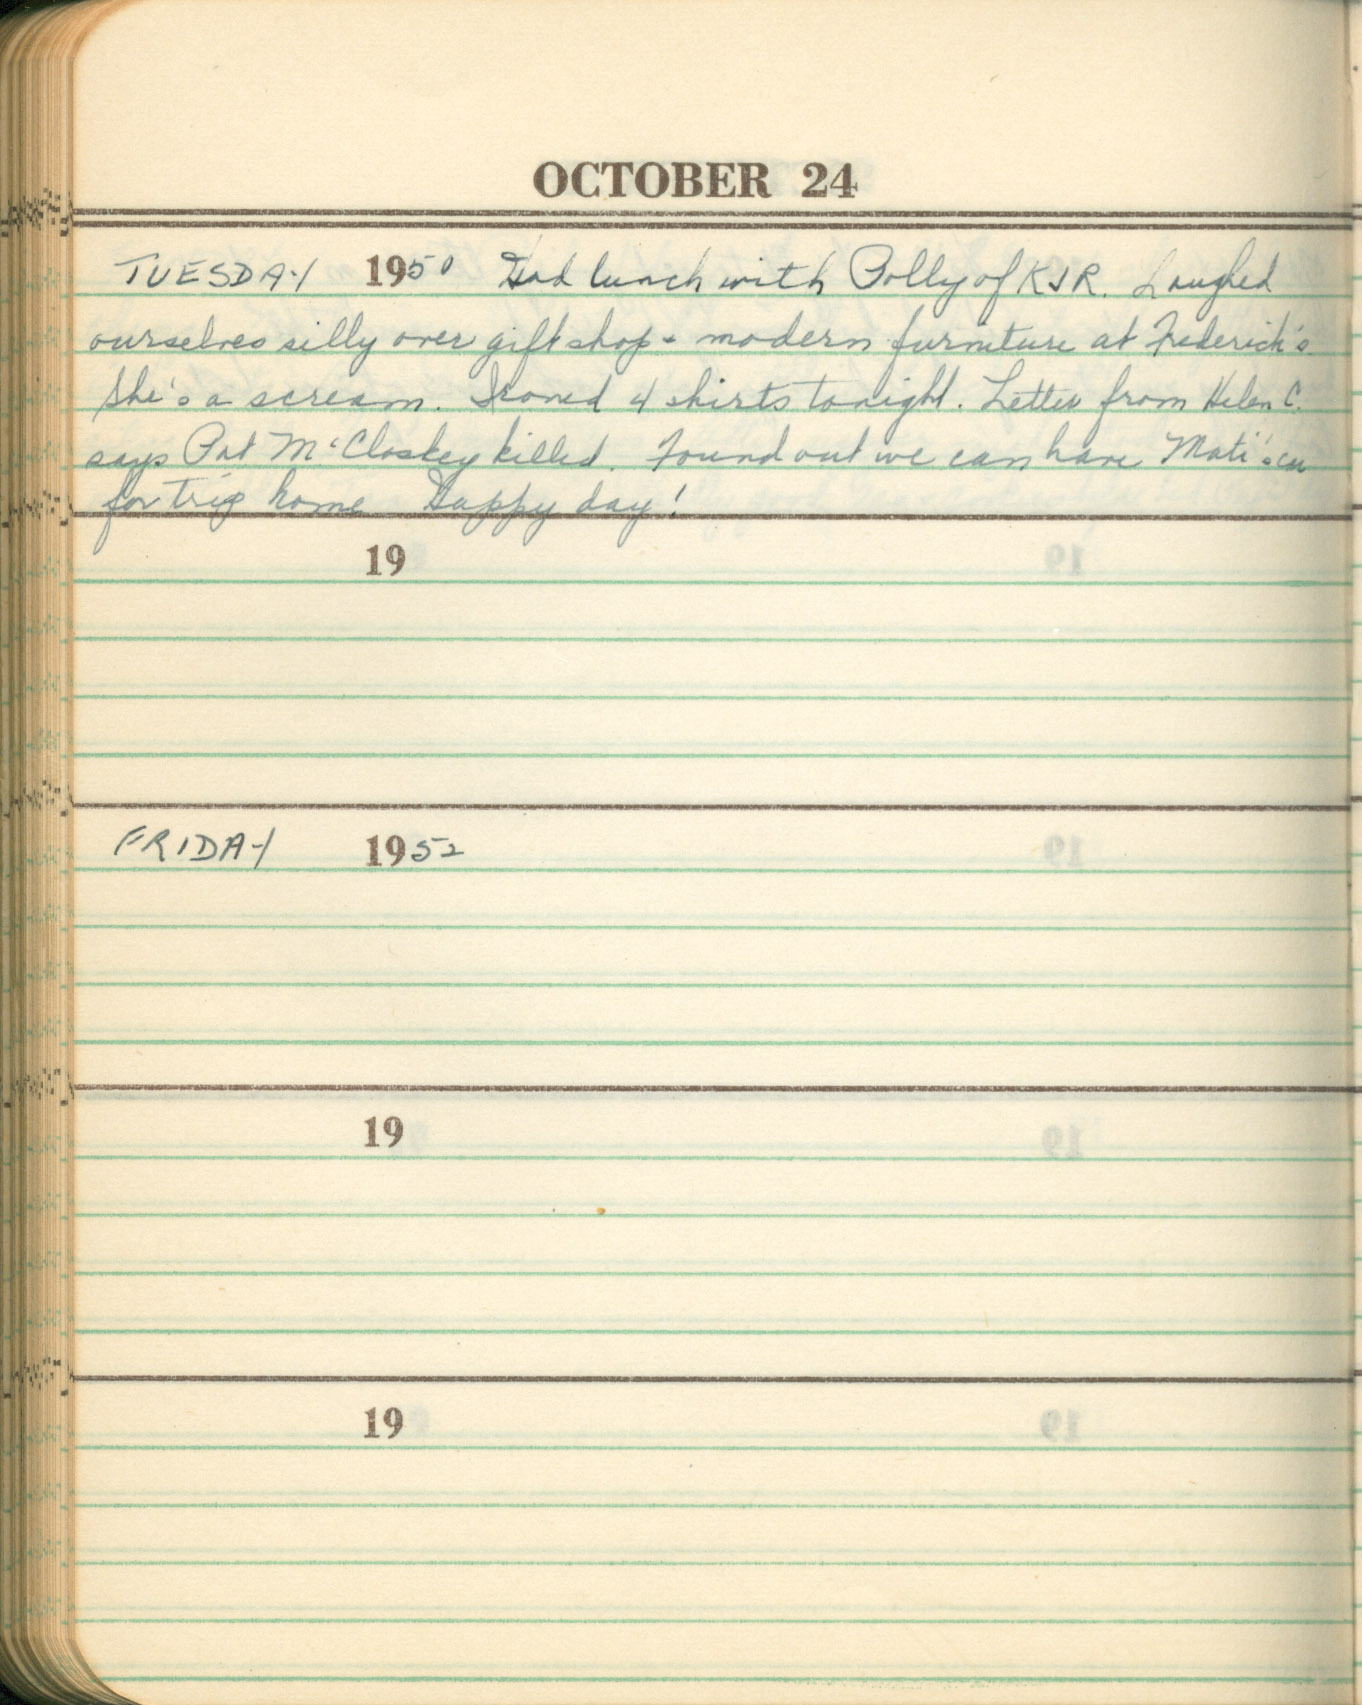 OCTOBER 24
TUESDAY 1950 Had lunch with Polly of KJR. Laughed
ourselves silly over gift shop + modern furniture at Frederick's.
She's a scream. Ironed 4 shirts tonight. Letter from Helen C.
says Pat McCloskey killed. Found out we can have Mati's car
for trip home Happy day!
19
FRIDAY 1952
19
19